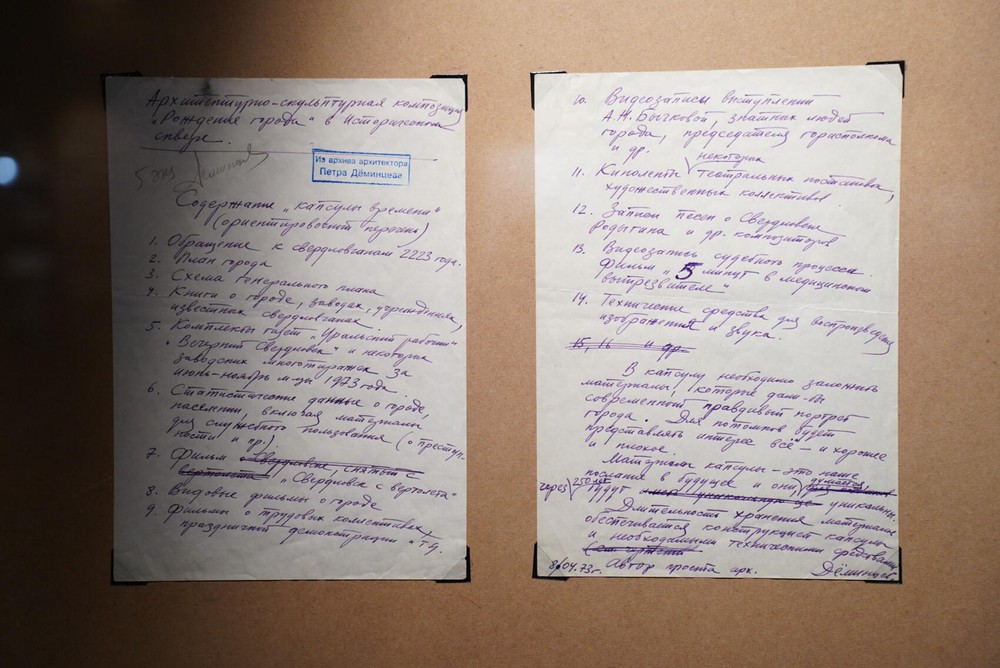 Архитектурно-скульптурная композиция
"Рождение города" в Историческом
сквере.
5 экз
Из архива архитектора
Петра Дёминцева
Содержание „капсулы времени"
(ориентировочный перечень)
1. Обращение к свердловчанам 2223 года.
2. План города
3. Схема генерального плана
4. Книги о городе, заводах, учреждениях,
известных свердловчанах.
5. Комплекты газет „Уральский рабочий"
„Вечерний Свердловск" и некоторых
заводских многотиражек за
июнь-ноябрь м-цы 1973 года.
6. Статистические данные о городе,
населении, включая материалы
для служебного пользования (о преступ-
ности и пр.).
7. Фильм о Свердловске, снятый с
вертолета „Свердловск с вертолета"
8. Видовые фильмы о городе
9. Фильмы о трудовых коллективах,
праздничных демонстрациях и т.д.
10. Видеозаписи выступлений
А.Н. Бычковой, знатных людей
города, председателя горисполкома
и др.
некоторых
11. Киноленты театральных постановок,
художественных коллективов.
12. Записи песен о Свердловске
Родыгина и др. композиторов
13. Видеозапись судебного процесса.
Фильм „5 минут в медицинском
вытрезвителе"
14. Технические средства для воспроизведения
изображения и звука.
15, 16 и др
В капсулу необходимо заложить
материалы, которые дали бы
современный правдивый портрет
города. Для потомков будет
представлять интерес всё – и хорошее
и плохое.
Материалы капсулы – это наше
послание в будущее и они, думается,
через 250 лет будут уникальны.
Длительность хранения материалов
обеспечивается конструкцией капсулы
и необходимыми техническими средствами
(см. чертежи
8/04.73г. Автор проекта арх. Дёминцев